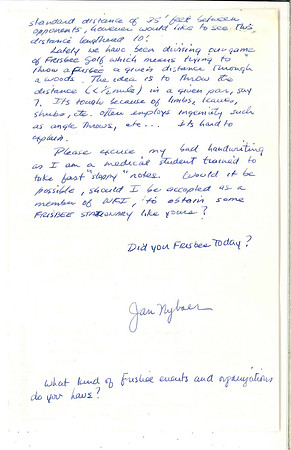 standard distance of 35' feet between
opponents, however would like to see this
distance lengthened 10'.
Lately we have been devising our game
of Frisbee Golf which means trying to
throw a Frisbee a given distance through
a woods. The idea is to throw the
distance (< ½ mile) in a given par, say
7. Its tough because of limbs, leaves,
shrubs, etc. often employs ingenuity such
as angle throws, etc... its hard to
explain.
Please excuse my bad handwriting
as I am a medical student trained to
take fast "sloppy" notes. Would it be
possible, should I be accepted as a
member of WFI, to obtain some
FRISBEE stationary like yours?
Did you Frisbee Today?
Jan Nyboer
What kind of frisbee events and organizations
do you have?